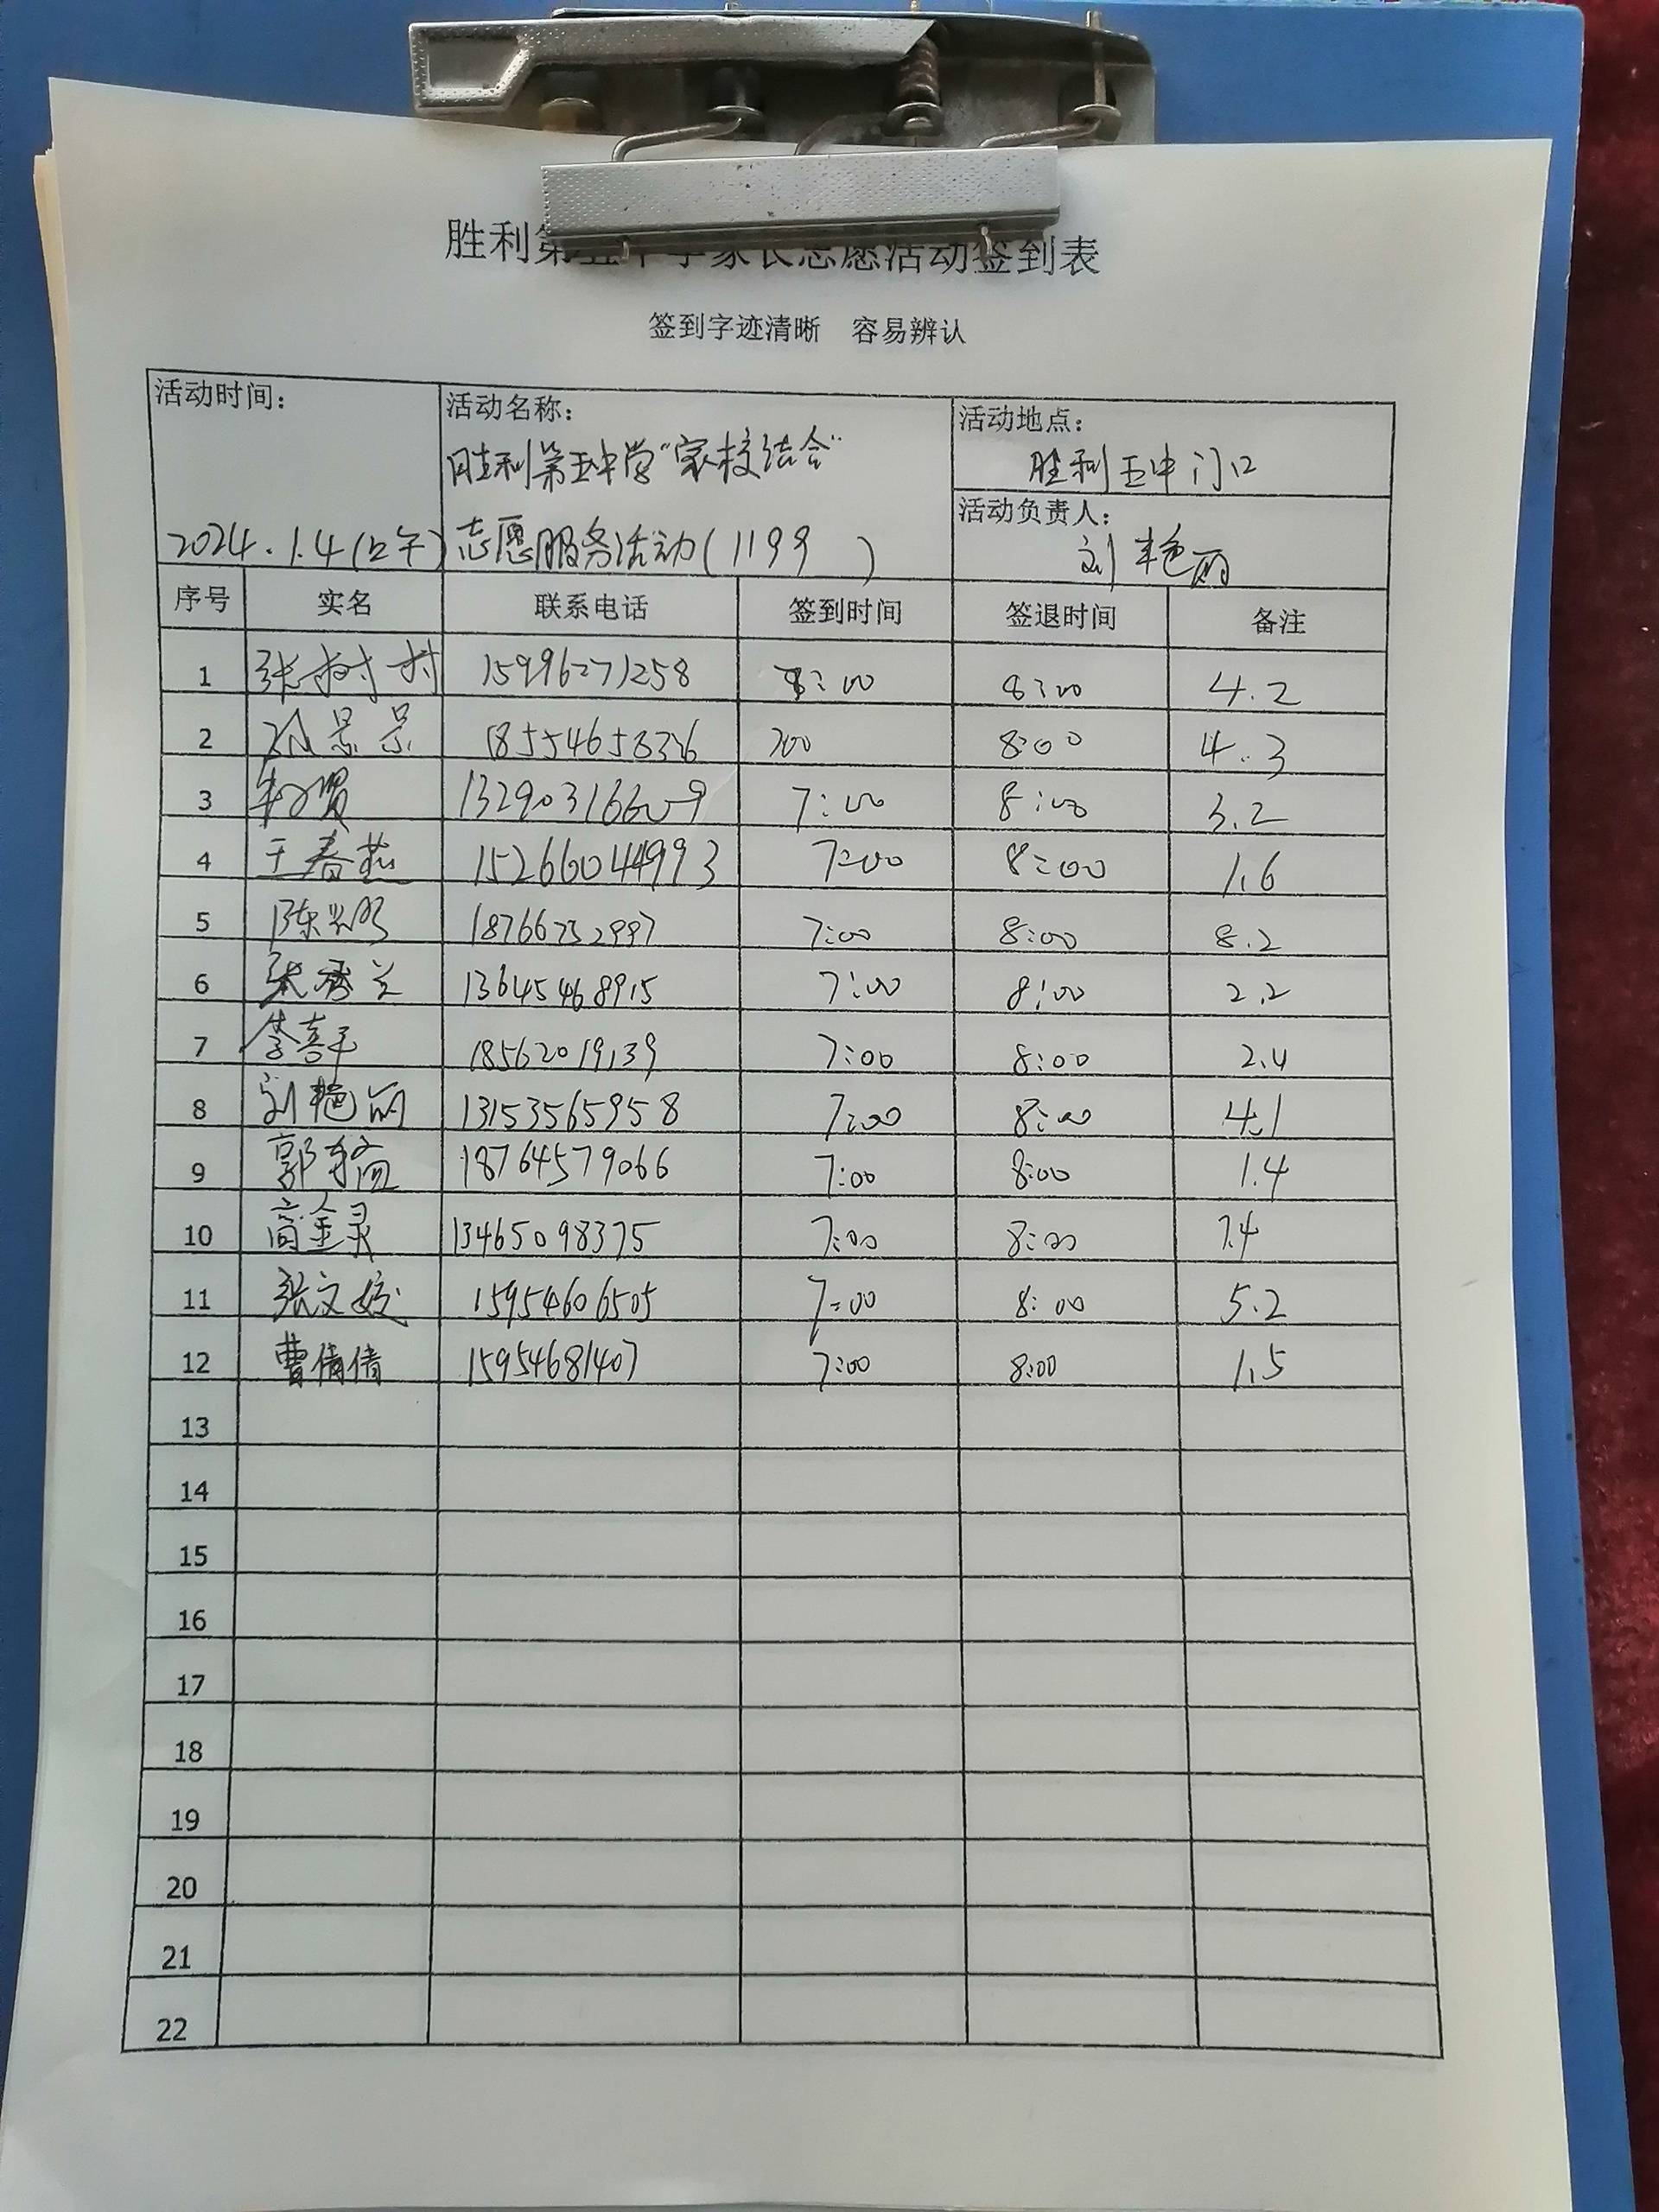 胜利第五中学家长志愿活动签到表
签到字迹清晰 容易辨认
活动时间： 活动名称： 活动地点：
胜利第五中学“家校结合” 胜利五中门口
活动负责人：
2024.1.4(上午) 志愿服务活动(1199 ) 刘艳丽
序号 实名 联系电话 签到时间 签退时间 备注
1 张树村 15996271258 8:00 8:00 4.2
2 孙景景 18554658336 700 8:00 4.3
3 13290316609 7:00 8:00 3.2
4 王春燕 15266044993 7:00 8:00 1.6
5 陈 18766752997 7:00 8:00 8.2
6 张秀兰 13645468915 7:00 8:00 2.2
7 李喜平 18562019139 7:00 8:00 2.4
8 刘艳丽 13153565958 7:00 8:00 4.1
9 郭 18764579066 7:00 8:00 1.4
10 商金录 13465098375 7:00 8:00 7.4
11 张文姣 15954606505 7:00 8:00 5.2
12 曹倩倩 15954681407 7:00 8:00 1.5
13
14
15
16
17
18
19
20
21
22